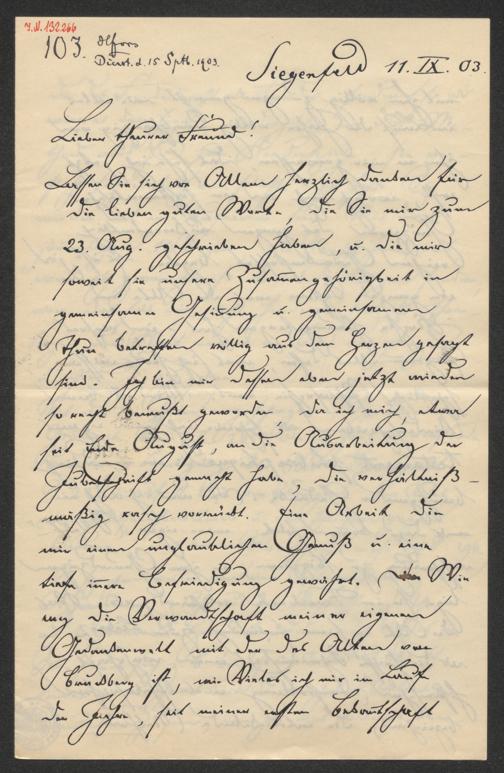 I.N. 132.266
103.
Dienst. d. 15 Sptb. 1903.
Siegenfeld 11. IX. 03.
Lieber theurer Freund!
Lassen Sie sich vor Allem herzlich danken für
die lieben guten Worte, die Sie mir zum
23. Aug. geschrieben haben, u. die mir
soweit sie unsere Zusammengehörigkeit in
gemeinsamer Gesinnung u. gemeinsamem
Thun betreffen völlig aus dem Herzen gesagt
sind. Ich bin mir dessen eben jetzt wieder
so recht bewußt geworden, da ich mich, etwa
seit Ende August, an die Ausarbeitung der
Jubelschrift gemacht habe, die verhältniß-
mäßig rasch vorrückt. Eine Arbeit die
mir einen unglaublichen Genuß u. eine
tiefe innere Befriedigung gewährt. Wie
eng die Verwandtschaft meiner eigenen
Gedankenwelt mit der des Alten von
ist, wie Vieles ich mir im Lauf
der Jahre, seit meiner ersten Bekanntschaft